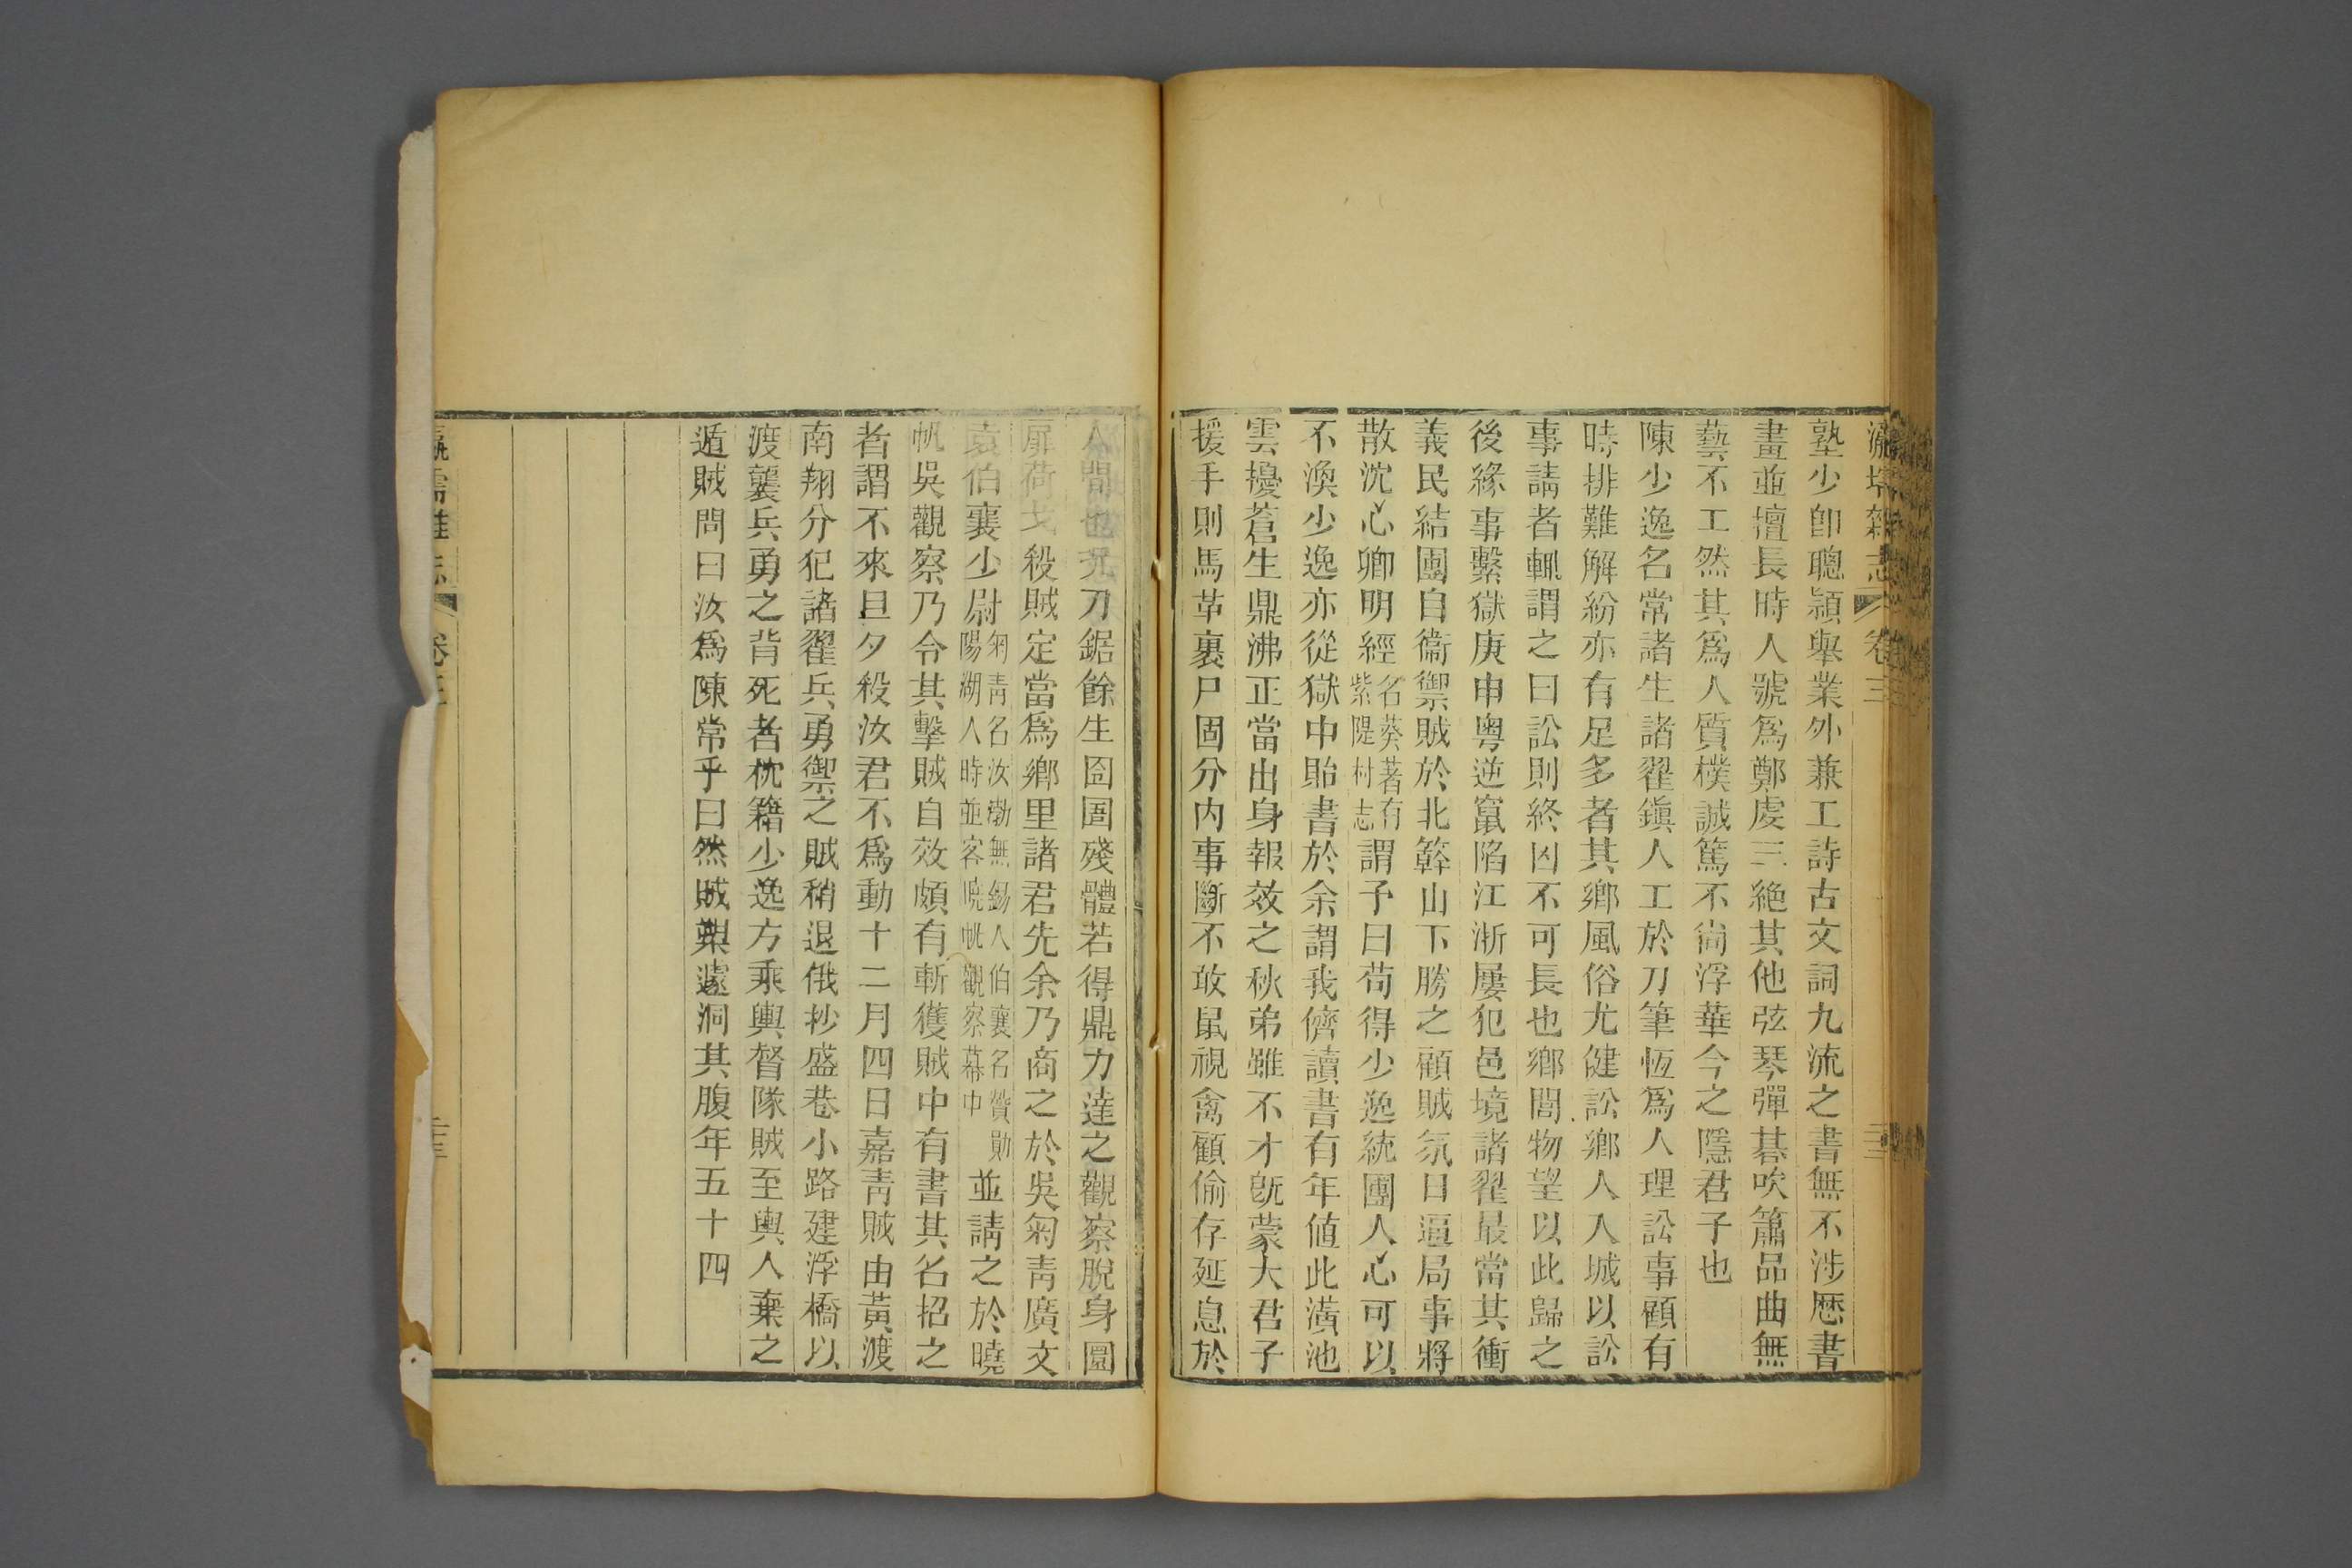 瀛壖雜志 卷三
塾少卽聰頴舉業外兼工詩古文詞九流之書無不涉厯書
畫並擅長時人號爲鄭虔三絕其他弦琴彈碁吹簫品曲無
藝不工然其爲人質樸誠篤不尙浮華今之隱君子也
陳少逸名常諸生諸翟鎭人工於刀筆恆爲人理訟事顧有
時排難解紛亦有足多者其鄉風俗尤健訟鄉人入城以訟
事請者輒謂之曰訟則終凶不可長也鄉閭物望以此歸之
後緣事繫獄庚申粵逆竄陷江浙屢犯邑境諸翟最當其衝
義民結團自衞禦賊於北簳山下勝之顧賊氛日逼局事將
散沈心卿明經名葵著有紫隄村志謂予曰苟得少逸統團人心可以
不渙少逸亦從獄中貽書於余謂我儕讀書有年値此潢池
雲擾蒼生鼎沸正當出身報效之秋弟雖不才旣蒙大君子
援手則馬革裹尸固分內事斷不敢鼠視禽顧偷存延息於
人間也尭刀鋸餘生囹圄殘體若得鼎力達之觀察脫身圜
扉荷戈殺賊定當爲鄉里諸君先余乃商之於吳菊靑廣文
袁伯襄少尉菊靑名汝渤無錫人伯襄名贊勛陽湖人時並客曉帆觀察幕中並請之於曉
帆吳觀察乃令其擊賊自效頗有斬獲賊中有書其名招之
者謂不來旦夕殺汝君不爲動十二月四日嘉靑賊由黃渡
南翔分犯諸翟兵勇禦之賊稍退俄抄盛巷小路建浮橋以
渡襲兵勇之背死者枕籍少逸方乘輿督隊賊至輿人棄之
遁賊問曰汝爲陳常乎曰然賊槊遽洞其腹年五十四